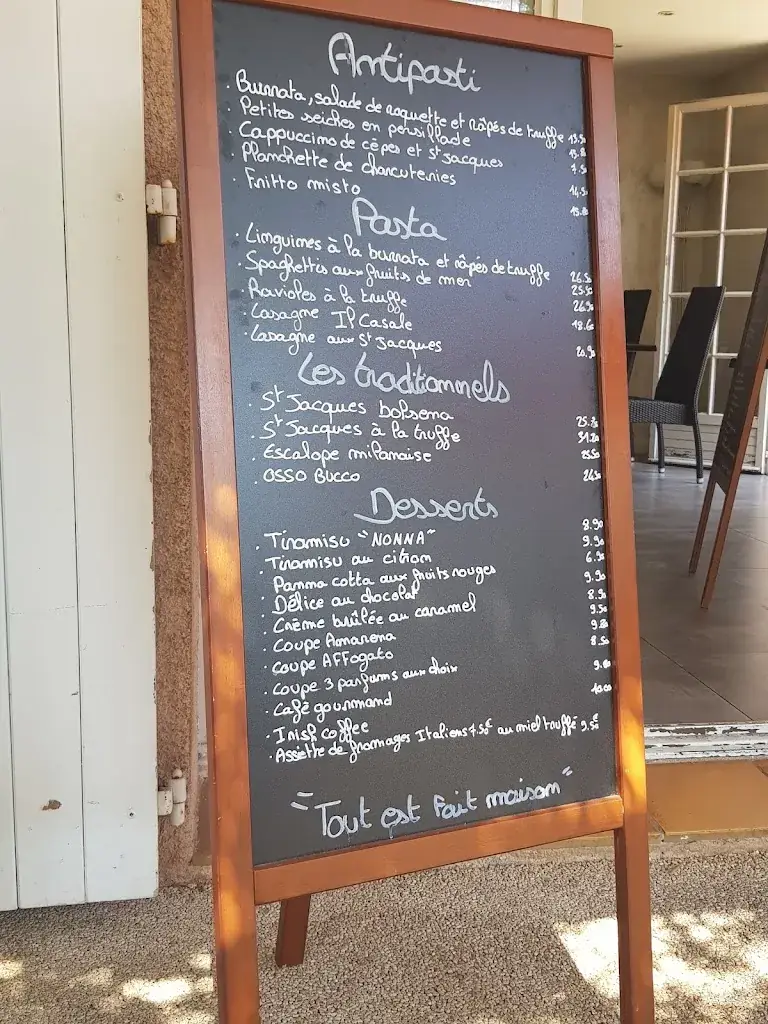 Antipasti
· Burrata, salade de roquette et râpés de truffe 13.50
· Petites seiches en persillade
· Cappuccino de cèpes et St Jacques 7.50
· Planchette de charcuteries 14.50
· Fritto misto
Pasta
· Linguines à la burrata et râpés de truffe 26.50
· Spaghettis aux fruits de mer 25.50
· Ravioles à la truffe 26.90
· Lasagne Il Casale 18.60
· Lasagne aux St Jacques 20.90
Les traditionnels
· St Jacques bolsena
· St Jacques à la truffe 31.20
· Escalope milanaise
· OSSO BUCCO 24.50
Desserts
· Tiramisu "NONNA" 8.90
· Tiramisu au citron 9.90
· Panna cotta aux fruits rouges 6.90
· Délice au chocolat 9.90
· Crème brûlée au caramel 8.90
· Coupe Amarena 9.50
· Coupe AFFogato 9.80
· Coupe 3 parfums aux choix 8.50
· Café gourmand
· Irish coffee 10.00
· Assiette de fromages Italiens 7.50€ au miel truffé 9.50€
"Tout est Fait maison"